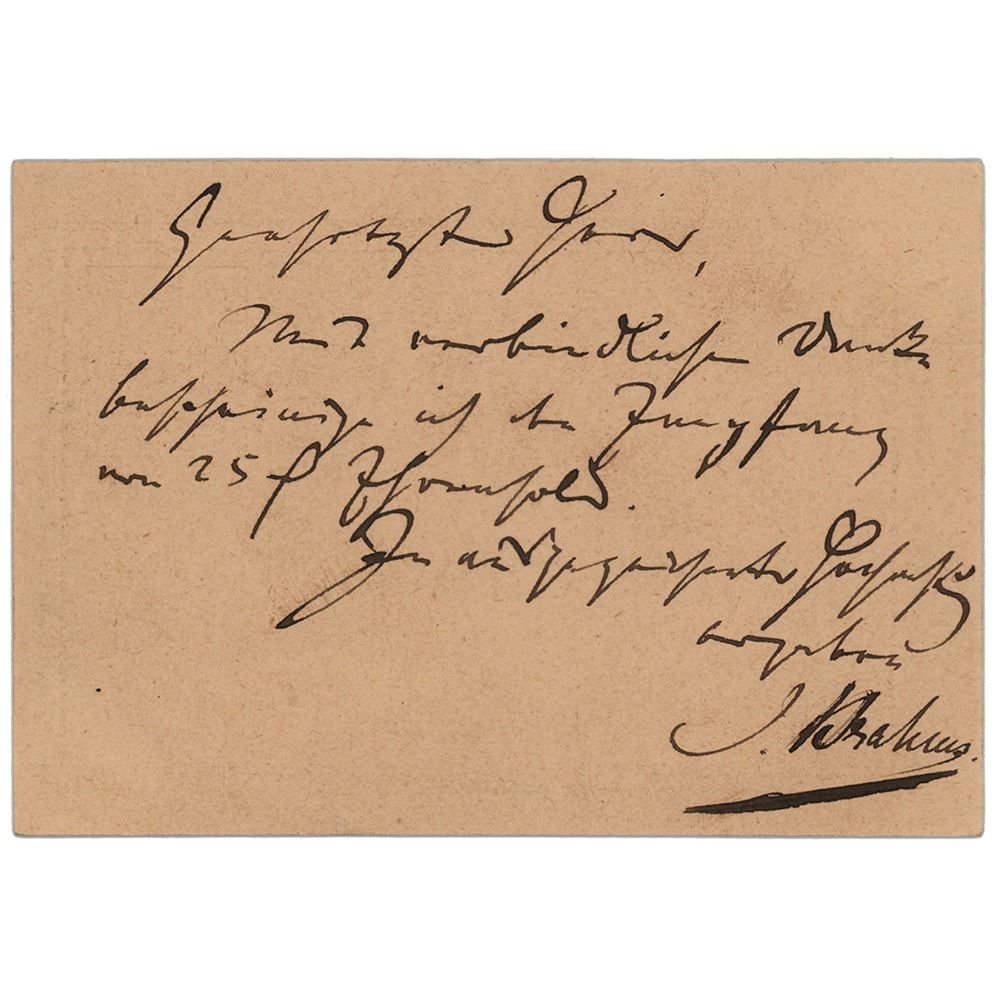 Geehrtester Herr,
Mit verbindlichem Dank
bescheinige ich den Empfang
von 25 f
In ausgezeichneter Hochachtg
ergeben
J. Brahms.